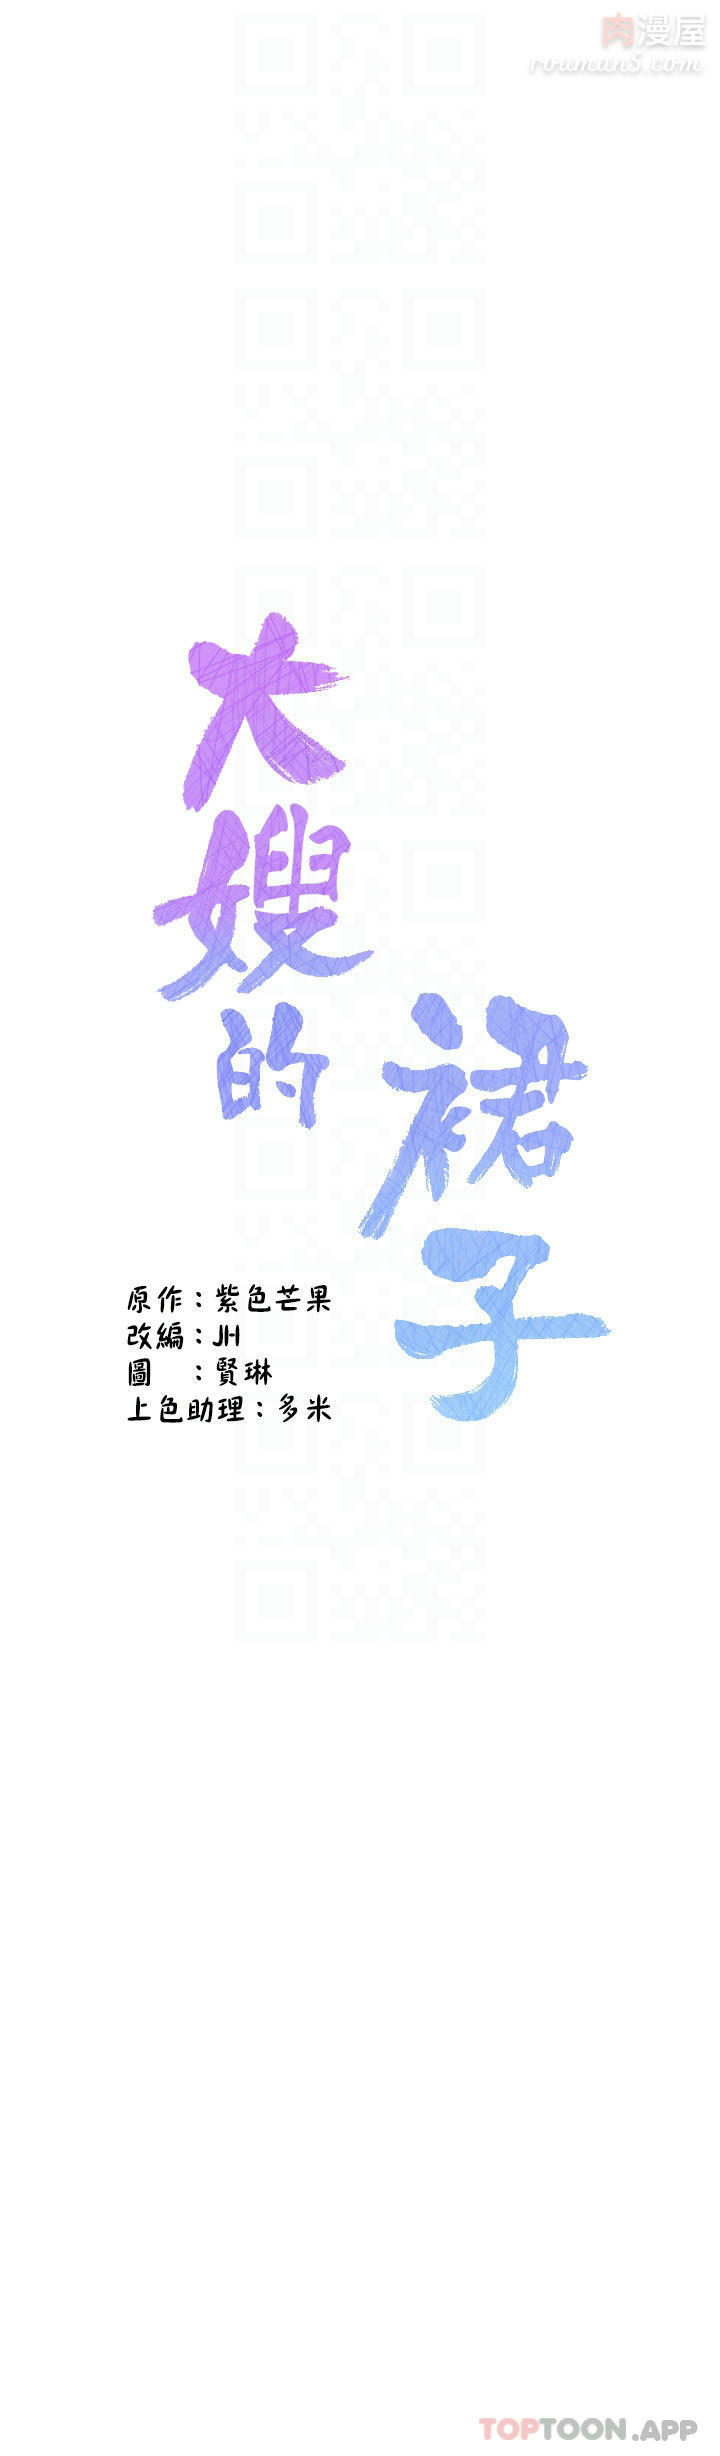 肉漫屋
rouman5.com
大嫂的
裙子
原作：紫色芒果
改編：JH
圖　：賢琳
上色助理：多米
TOPTOON.APP